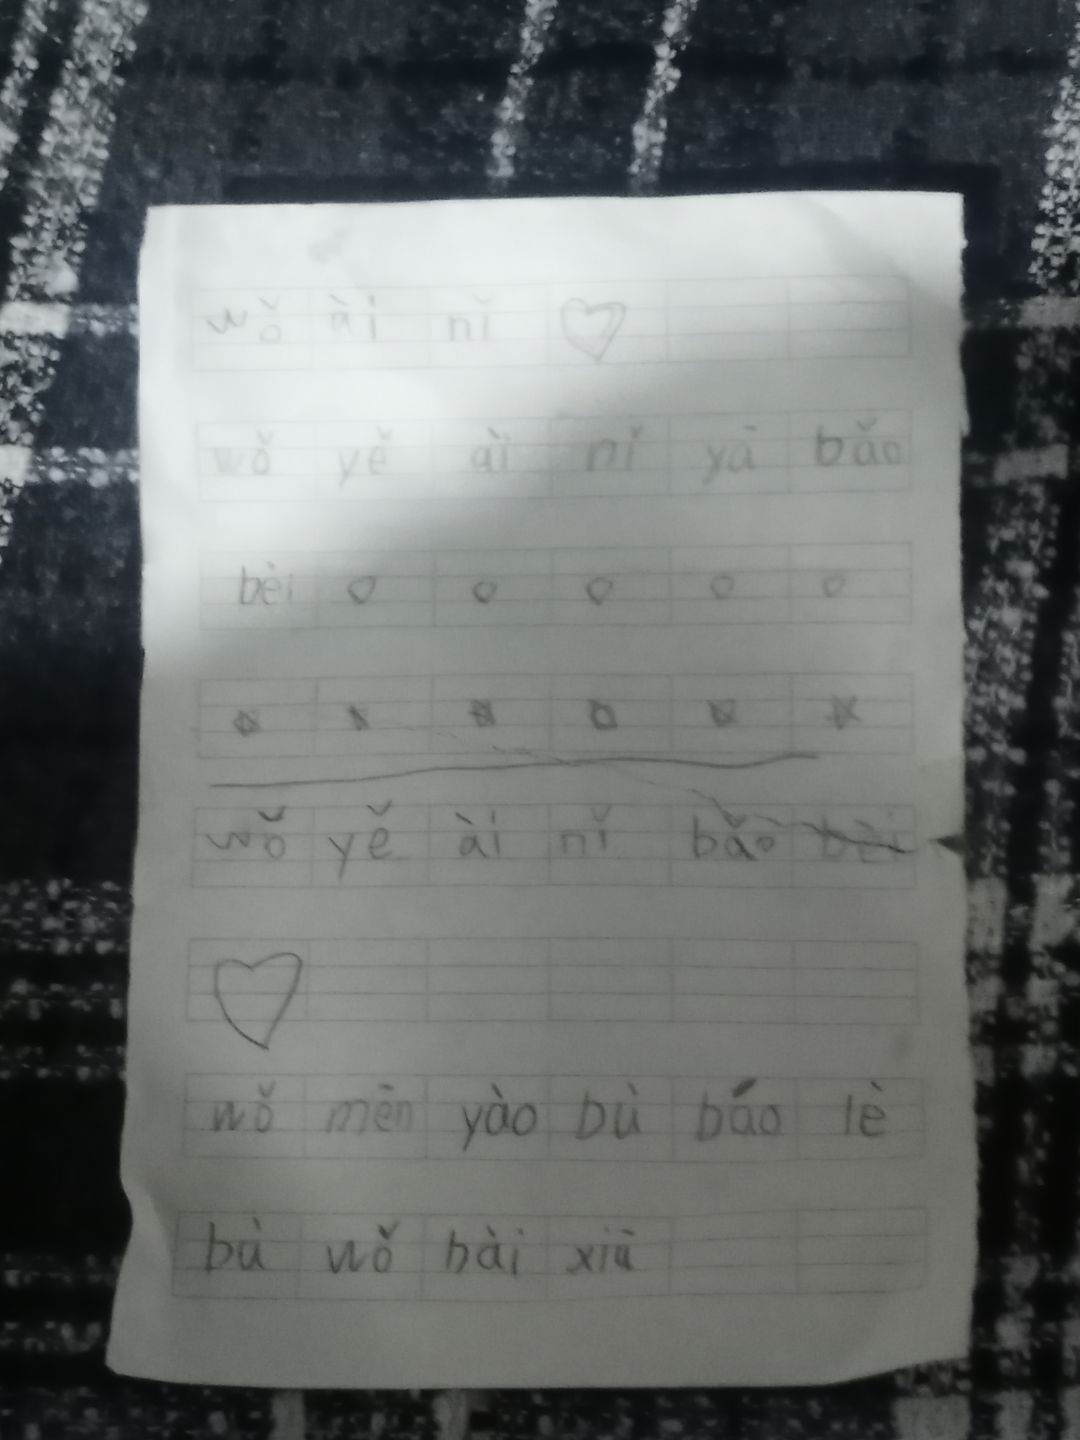 wǒ ài nǐ
wǒ yě ài nǐ yà bǎo
bèi
wǒ yě ài nǐ bǎo bèi
wǒ mēn yào bù báo lè
bù wǒ hài xiū